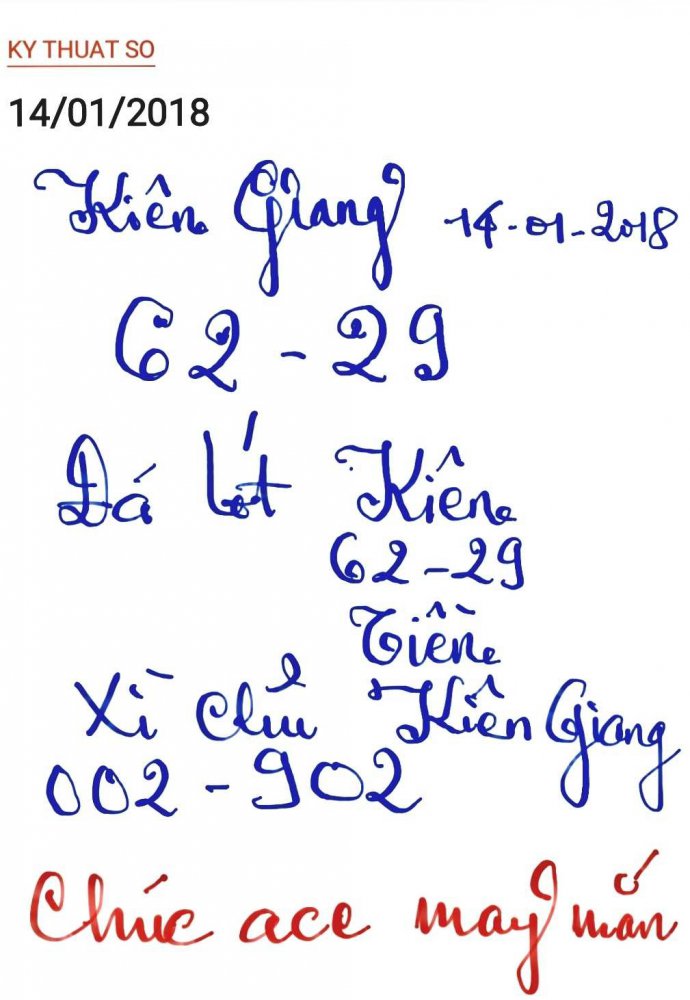 KY THUAT SO
14/01/2018
Kiên Giang 14-01-2018
62-29
Đá lớt Kiên
62-29
Tiền
Xỉ chủ Kiên Giang
002-902
Chúc ace may mắn